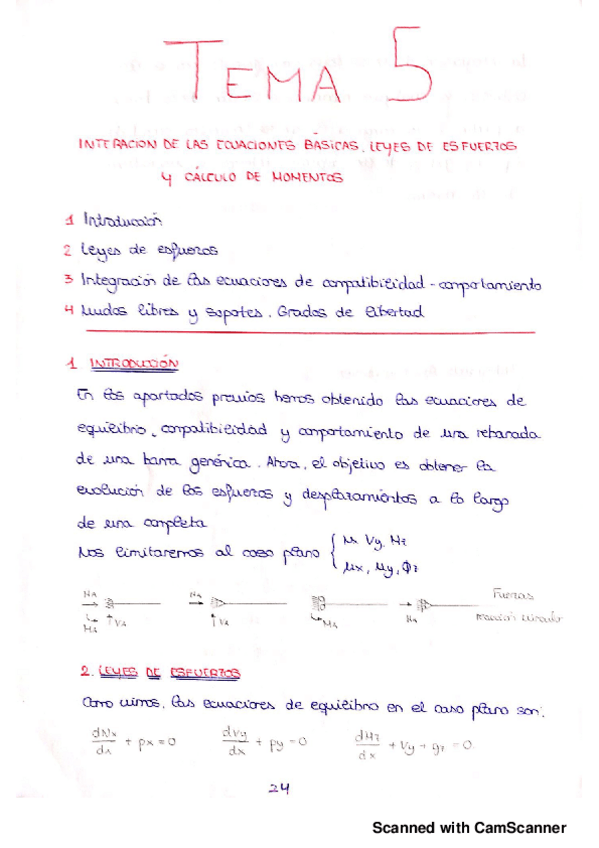 TEMA 5
INTEGRACION DE LAS ECUACIONES BÁSICAS, LEYES DE ESFUERZOS
Y CÁLCULO DE MOMENTOS
1 Introducción
2 Leyes de esfuerzos
3 Integración de las ecuaciones de compatibilidad - comportamiento
4 Nudos libres y soportes. Grados de libertad
1 INTRODUCCIÓN
En los apartados previos hemos obtenido las ecuaciones de
equilibrio, compatibilidad y comportamiento de una rebanada
de una barra genérica. Ahora, el objetivo es obtener la
evolución de los esfuerzos y desplazamientos a lo largo
de una completa
Nos limitaremos al caso plano { Nx Vy, Mz
ux, uy, θz
NA NA Fuerzas
MA VA VA MA NA
2. LEYES DE ESFUERZOS
Como vimos, las ecuaciones de equilibrio en el caso plano son:
dNx/dx + px = 0 dVy/dx + py = 0 dMz/dx + Vy + qz = 0
24
Scanned with CamScanner